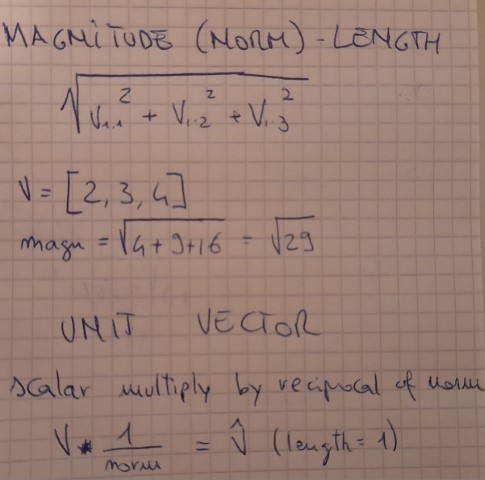 MAGNITUDE (NORM) - LENGTH
√(V₁.₁² + V₁.₂² + V₁.₃²)
V = [2, 3, 4]
magn = √(4+9+16) = √29
UNIT VECTOR
scalar multiply by reciprocal of norm
V * 1/norm = V̂ (length = 1)